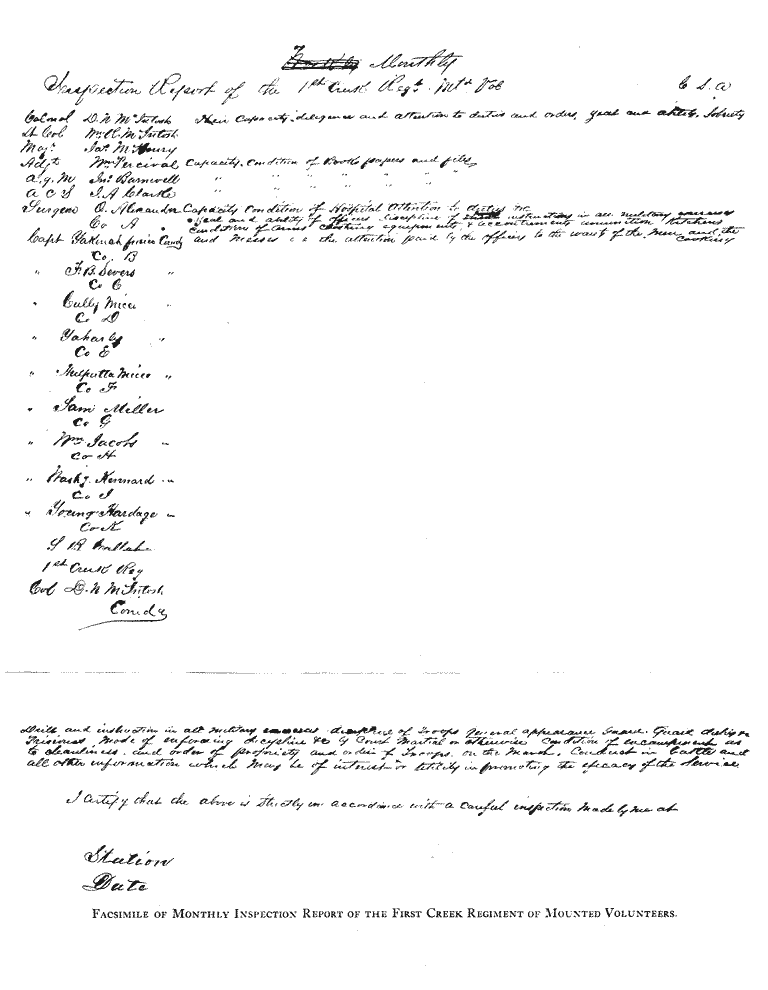 Monthly
Inspection Report of the 1st Creek Regt. Mtd Vol C S A
Colonel D. N. McIntosh Their Capacity diligence and attention to duties and orders, zeal and ability, Sobriety
Lt Col Wm. C. McIntosh
Maj. Jas. McHenry
Adjt Wm Percival Capacity. Condition of Books papers and files,
A. q. M Jno. Barnwell " " " " " "
A C S J. A. Clarke
Surgeon O. Alexander Capacity Condition of Hospital Attention to duties &c
Co A zeal and ability of officers Discipline of instructions in all military exercises
Condition of Arms Clothing equipments, & accoutrements ammunition Kitchens
Capt Yakinah and Messes the attention paid by the officers to the wants of the Men and the cooking
Co. B
" F. B. Severs "
Co C
" Cully Micco "
Co D
" Yahar "
Co E
" Micco "
Co F
" Sam Miller
Co G
" Wm. Jacobs "
Co H
" Wash. Kennard "
Co I
" Young Hardage "
Co K
S R
1st Creek Reg
Col D. N. McIntosh
Comdg
Drill and instruction in all Military exercises discipline of Troops General appearance Guard. Guard duty
Prisoners Mode of enforcing discipline &c by Court Martial or otherwise Condition of encampment as
to cleanliness. and order of propriety and order of Troops. on the March. Conduct in battle and
all other information which May be of interest or utility in promoting the efficacy of the Service
I certify that the above is Strictly in accordance with a careful inspection Made by me at
Station
Date
FACSIMILE OF MONTHLY INSPECTION REPORT OF THE FIRST CREEK REGIMENT OF MOUNTED VOLUNTEERS.